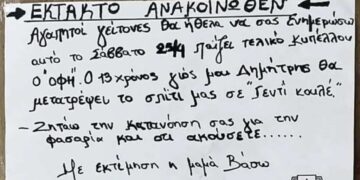 ΕΚΤΑΚΤΟ ΑΝΑΚΟΙΝΩΘΕΝ
Αγαπητοί γείτονες θα ήθελα να σας ενημερώσω
αυτό το Σάββατο 25/4 παίζει τελικό κυπέλλου
ο "οφη". Ο 13χρονος γιός μου Δημήτρης θα
μετατρέψει το σπίτι μας σε "Γεντί κουλέ".
- Ζητάω την κατανόηση σας για την
φασαρία και ότι ακούσετε......
Με εκτέμηση η μαμά Βάσω